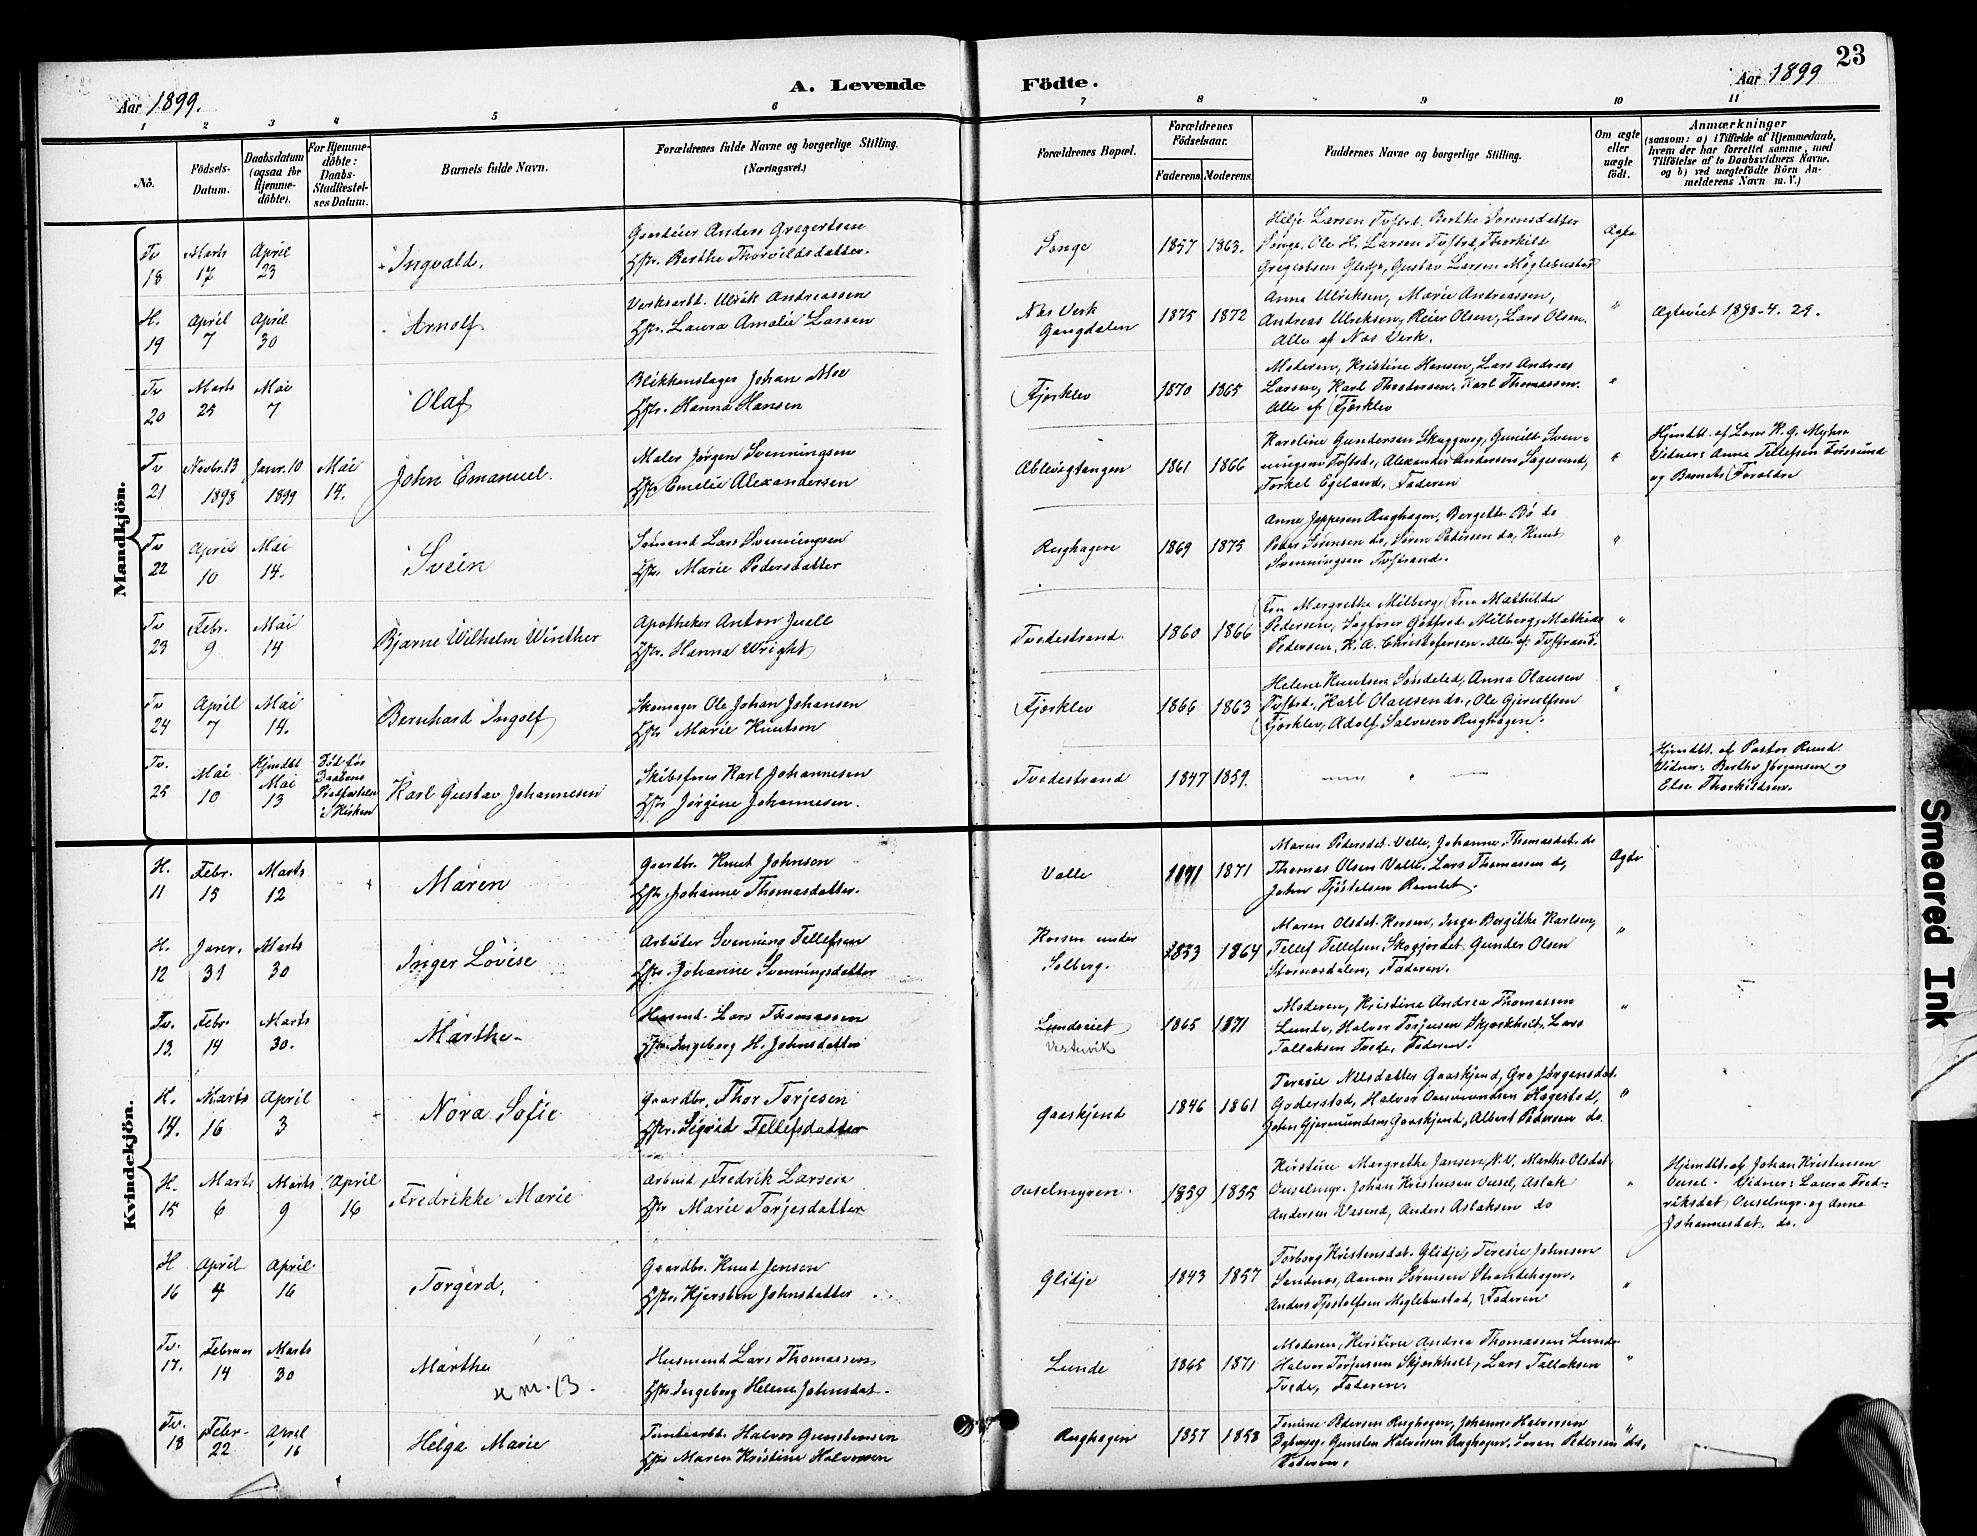 23
A. Levende Födte.
Aar 1899.
Aar 1899
1 2 3 4 5 6 7 8 9 10 11
No.
Födsels-Datum.
Daabsdatum (ogsaa for Hjemme-döbte).
For Hjemme-döbte: Daabs-Stadfæstel-ses Datum.
Barnets fulde Navn.
Forældrenes fulde Navne og borgerlige Stilling.
(Næringsvei.)
Forældrenes Bopæl.
Forældrenes Födselsaar.
Faderens. Moderens.
Faddernes Navne og borgerlige Stilling.
Om ægte eller uægte födt.
Anmærkninger
(saasom: a) i Tilfælde af Hjemmedaab, hvem der har forrettet samme, med Tilföielse af to Daabsvidners Navne, og b) ved uægtefödte Börn An-melderens Navn m. V.)
Mandkjön.
Tv 18 Marts 17 April 23 Ingvald.
Gaardeier Anders Gregertsen
Hstr. Berthe Thorvildsdatter.
Songe 1857 1863.
Helje Larsen Tvestrd, Berthe Sorensdatter
Songe, Ole H. Larsen Tvestrd, Thorkild
Gregertsen Glidje, Gustav Larsen Möglebustad
Ægte
H. 19 April 7 April 30 Arnolf
Verksarbd. Ulrik Andreassen
Hstr. Laura Amalie Larsen
Næs Verk Gangdalen 1875 1872
Anna Ulriksen, Marie Andreassen,
Andreas Ulriksen, Reier Olsen, Lars Olsen.
Alle af Næs Verk.
"
Ægteviet 1898-4. 29.
Tv 20 Marts 25 Mai 7 Olaf
Blikkenslager Johan Moe
Hstr. Hanna Hansen
Fjærklev 1870 1865
Moderen, Kristine Hansen, Lars Andreas
Larsen, Karl Theodorsen, Karl Thomassen.
Alle af Fjærklev
"
Tv 21 Novbr. 13 1898 Janr. 10 1899 Mai 14. John Emanuel.
Maler Jörgen Svenningsen
Hstr. Emelie Alexandersen
Ablevigtangen 1861 1866
Karoline Gundersen Skuggevig, Gunild Sven-
ningsen Tvestrd, Alexander Andersen Sagesund,
Torkel Egeland, Faderen
"
Hjmdbt. af Lars K. G. Myhre
Vidner: Anne Tellefsen Fossund
og Barnets Forældre
Tv 22 April 10 Mai 14. Svein
Sömand Lars Svenningsen
Hstr. Marie Pedersdatter
Rughagen 1869 1875
Anne Jeppesen Rughagen, Bergette Bö do
Peder Sörensen do, Sören Pedersen do, Knut
Svenningsen Tvestrand.
"
Tv 23 Febr. 9 Mai 14 Bjarne Wilhelm Winther
Apotheker Anton Juell
Hstr. Hanna Wright
Tvedestrand. 1860 1866
Fru Margrethe Milberg, Fru Mathilde
Pedersen, Sagförer Gotfred Milberg, Mathias
Pedersen, K. A. Christofersen. Alle af Tvestrand.
"
Tv 24 April 7 Mai 14. Bernhard Ingolf
Skomager Ole Johan Johansen
Hstr Marie Knutson
Fjærklev 1866 1863
Helene Knutsen Söndeled, Anna Olausen
Tvstrd., Karl Olausen do., Ole Gjeruldsen
Fjærklev, Adolf Salvesen Rughagen.
"
Tv. 25 Mai 10 Hjmdbt Mai 13 Död för Daabens Stadfæstelse i Kirken Karl Gustav Johannesen
Skibsförer Karl Johannesen
Hstr Jörgine Johannesen.
Tvedestrand 1847 1859.
"
Hjmdbt. af Pastor Rund.
Vidner: Berthe Jörgensen og
Else Thorkildsen.
Kvindekjön.
H. 11 Febr. 15 Marts 12 Maren
Gaardbr. Knut Johnson
Hstr. Johanne Thomasdatter.
Valle 1871 1871
Maren Pedersdat. Valle, Johanne Thomasdat. do
Thomas Olsen Valle, Lars Thomassen do,
John Fjöstelsen Ramlet.
Ægte
H. 12 Janr. 31 Marts 30 Inger Lovise
Arbeider Svenning Tellefsen
Hstr. Johanne Svenningsdatter
Korsen under Solberg. 1853 1864
Maren Olsdat. Korsen, Inga Bergithe Karlsen,
Tellef Tellefsen, Skogjordet, Gunder Olsen
Stornæsdalen, Faderen.
"
Tv. 13. Febr. 14 Marts 30. Marthe
Husmd. Lars Thomassen
Hstr. Ingeborg H. Johnsdatter
Lundeeiet Vestervik 1865 1871
Moderen, Kristine Andrea Thomassen
Lunde, Halvor Torjusen Skjærkholt, Lars
Tallaksen Tvede, Faderen.
"
H. 14. Marts 16 April 3 Nora Sofie
Gaardbr. Thor Torjesen
Hstr. Sigrid Tellefsdatter
Gaaskjend 1846 1861
Teresie Nilsdatter Gaaskjend, Gro Jörgensdat.
Goderstad, Halvor Aasmundsen Hagestad,
John Gjermundsen Gaaskjend, Albert Pedersen do.
"
H. 15 Marts 6 Marts 9 April 16 Fredrikke Marie
Arbeid, Fredrik Larsen
Hstr Marie Torjesdatter
Ouselmyren. 1859 1855
Kirstine Margrethe Jansen, N. V, Marthe Olsdat
Ouselmyr. Johan Kristensen Ousel, Aslak
Andersen Vasend, Anders Aslaksen do
"
Hjmdbt. af Johan Kristensen
Ousel. Vidner: Laura Fred-
riksdat Ouselmyr. og Anne
Johannesdat. do.
H 16 April 4 April 16 Torgerd,
Gaardbr. Knud Jensen
Hstr. Kjersten Johnsdatter
Glidje 1843 1857
Torborg Kristensdat. Glidje, Teresie Johnsen
Sandnæs, Aanon Sörensen Strandehagen,
Anders Tjostolfsen Möglebustad, Faderen
"
Tv. 17. Februar 14 Marts 30 Marthe
se nr. 13.
Husmand Lars Thomassen
Hstr Ingeborg Helene Johnsdat.
Lunde 1865 1871
Moderen, Kirstine Andrea Thomassen Lunde
Halvor Torjusen Skjærkholt, Lars Tallaksen
Tvede, Faderen.
"
Tv. 18 Febr. 22 April 16 Helga Marie
Tomtearbd. Halvor Gunstensen
Hstr Maren Kristine Halvorsen
Rughagen 1857 1858
Tomine Pedersen Rughagen, Johanne Halvorsen
Dybvaag. Gunsten Halvorsen Rughagen, Soren Pedersen do,
Faderen.
"
Smeared Ink